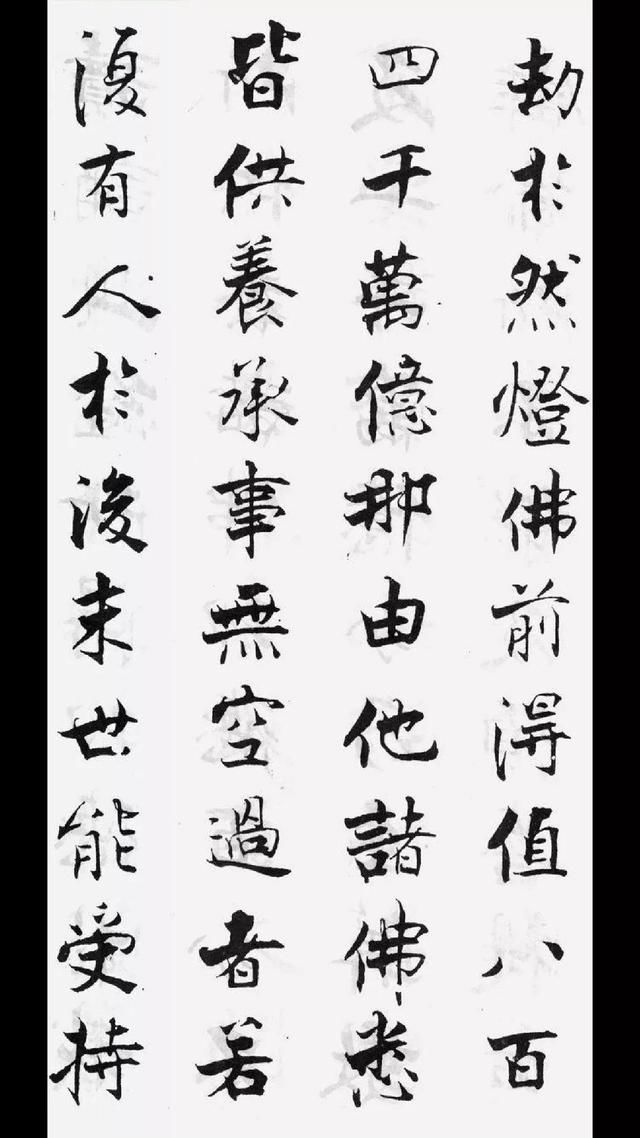 劫於然燈佛前得值八百
四千萬億那由他諸佛悉
皆供養承事無空過者若
復有人於後末世能受持